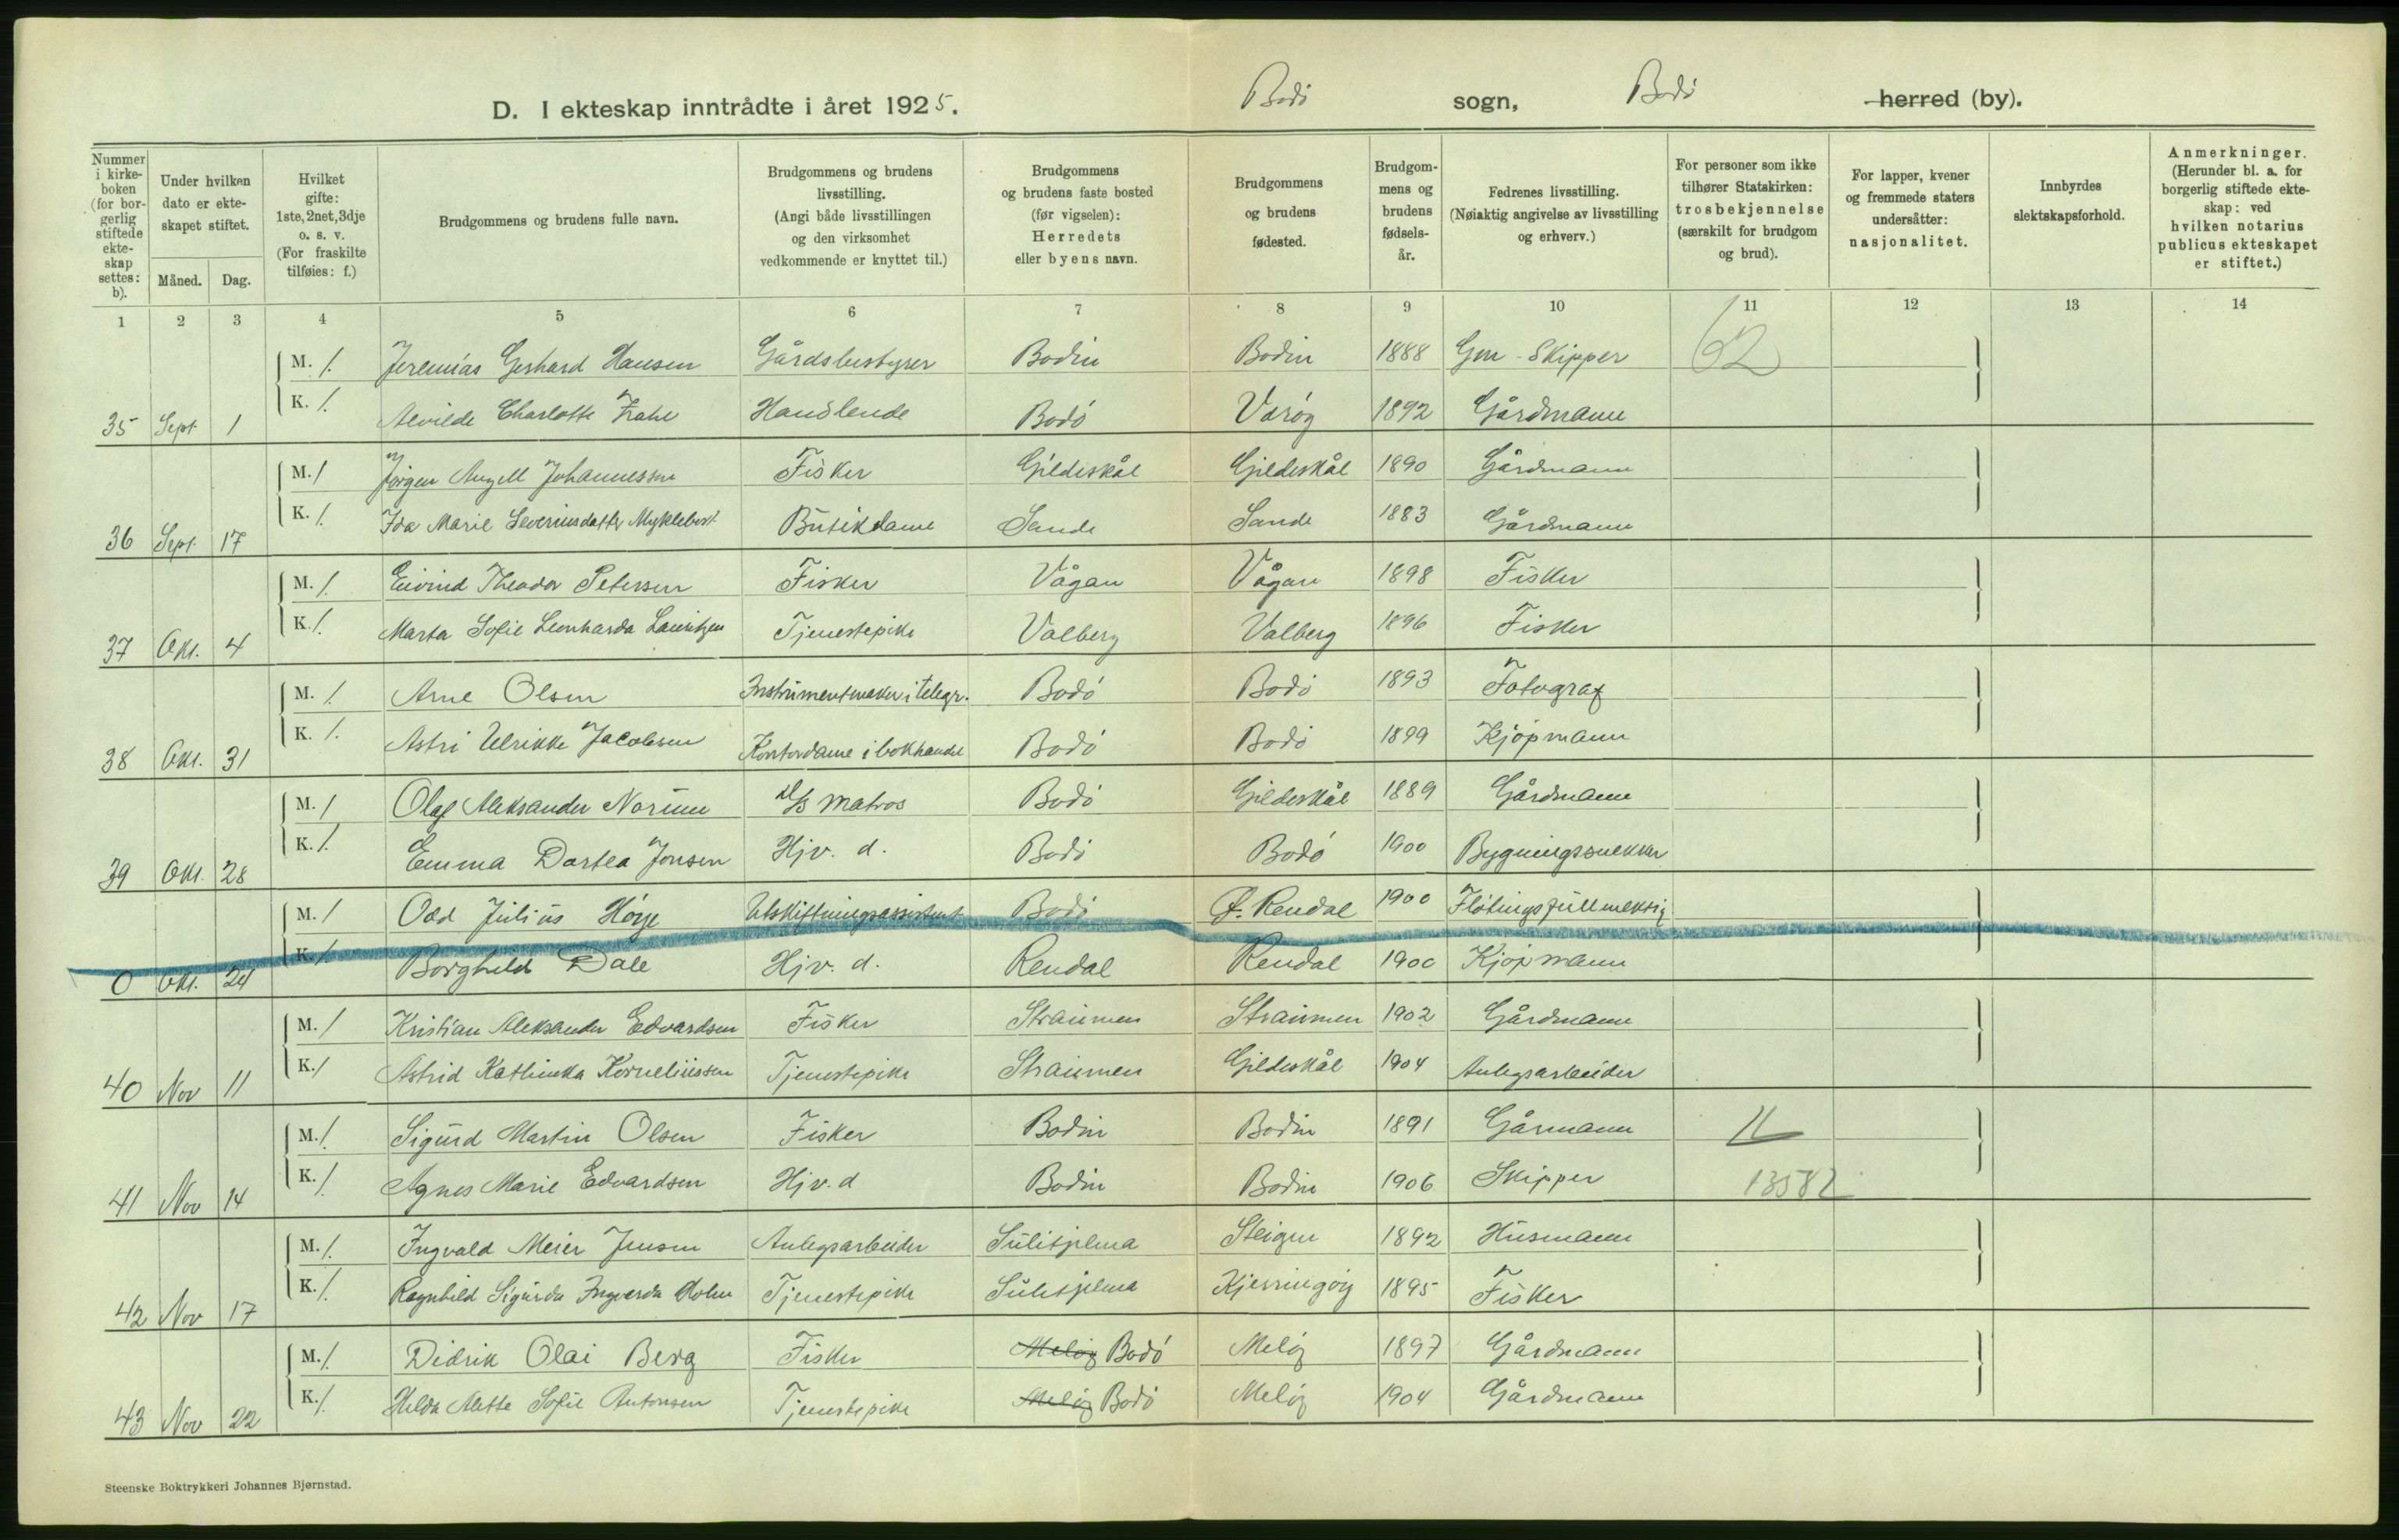 D. I ekteskap inntrådte i året 1925. Bodø sogn, Bodø herred (by).
Nummer i kirke-boken (for bor-gerlig stiftede ekte-skap settes: b).
Under hvilken dato er ekte-skapet stiftet.
Måned. Dag.
Hvilket gifte: 1ste, 2net, 3dje o. s. v. (For fraskilte tilføies: f.)
Brudgommens og brudens fulle navn.
Brudgommens og brudens livsstilling. (Angi både livsstillingen og den virksomhet vedkommende er knyttet til.)
Brudgommens og brudens faste bosted (før vigselen): Herredets eller byens navn.
Brudgommens og brudens fødested.
Brudgom-mens og brudens fødsels-år.
Fedrenes livsstilling. (Nøiaktig angivelse av livsstilling og erhverv.)
For personer som ikke tilhører Statskirken: trosbekjennelse (særskilt for brudgom og brud).
For lapper, kvener og fremmede staters undersåtter: nasjonalitet.
Innbyrdes slektskapsforhold.
Anmerkninger. (Herunder bl. a. for borgerlig stiftede ekte-skap: ved hvilken notarius publicus ekteskapet er stiftet.)
1 2 3 4 5 6 7 8 9 10 11 12 13 14
M. 1. Jeremias Gerhard Hansen Gårdsbestyrer Bodin Bodin 1888 Gm - Skipper 62
35 Sept 1 K. 1. Alvilde Charlotte Zahl Handlende Bodø Værøy 1892 Gårdmann
M. 1 Jørgen Angell Johannessen Fisker Gildeskål Gildeskål 1890 Gårdmann
36 Sept. 17 K. 1. Ida Marie Severinsdatter Myklebust Butikdame Sande Sande 1883 Gårdmann
M. 1. Eivind Theodor Petersen Fisker Vågan Vågan 1898 Fisker
37 Okt. 4 K. 1. Marta Sofie Leonharda Lauritzen Tjenestepike Valberg Valberg 1896 Fisker
M. 1. Arne Olsen Instrumentmaker i telegr. Bodø Bodø 1893 Fotograf
38 Okt. 31 K. 1. Astri Ulrikke Jacobsen Kontordame i bokhandel Bodø Bodø 1899 Kjøpmann
M. 1 Olaf Aleksander Norum D/S matros Bodø Gildeskål 1889 Gårdmann
39 Okt. 28 K. 1. Emma Dortea Jonsen Hjv. d. Bodø Bodø 1900 Bygningssnekker
M. 1 Odd Julius Høye Utskiftningsassistent Bodø Ø. Rendal 1900 Fløtningsfullmektig
0 Okt. 24 K. 1. Borghild Dale Hjv. d. Rendal Rendal 1900 Kjøpmann
M. 1 Kristian Aleksander Edvardsen Fisker Straumen Straumen 1902 Gårdmann
40 Nov 11 K. 1 Astrid Kathinka Korneliussen Tjenestepike Straumen Gildeskål 1904 Anlegsarbeider
M. 1. Sigurd Martin Olsen Fisker Bodin Bodin 1891 Gårmann 11
41 Nov 14 K. 1. Agnes Marie Edvardsen Hjv. d Bodin Bodin 1906 Skipper 13582
M. 1. Ingvald Meier Jensen Anlegsarbeider Sulitjelma Steigen 1892 Husmann
42 Nov 17 K. 1. Ragnhild Sigurda Ingverda Holm Tjenestepike Sulitjelma Kjerringøy 1895 Fisker
M. 1. Didrik Olai Berg Fisker Meløy Bodø Meløy 1897 Gårdmann
43 Nov 22 K. 1. Hilda Alette Sofie Antonsen Tjenestepike Meløy Bodø Meløy 1904 Gårdmann
Steenske Boktrykkeri Johannes Bjørnstad.